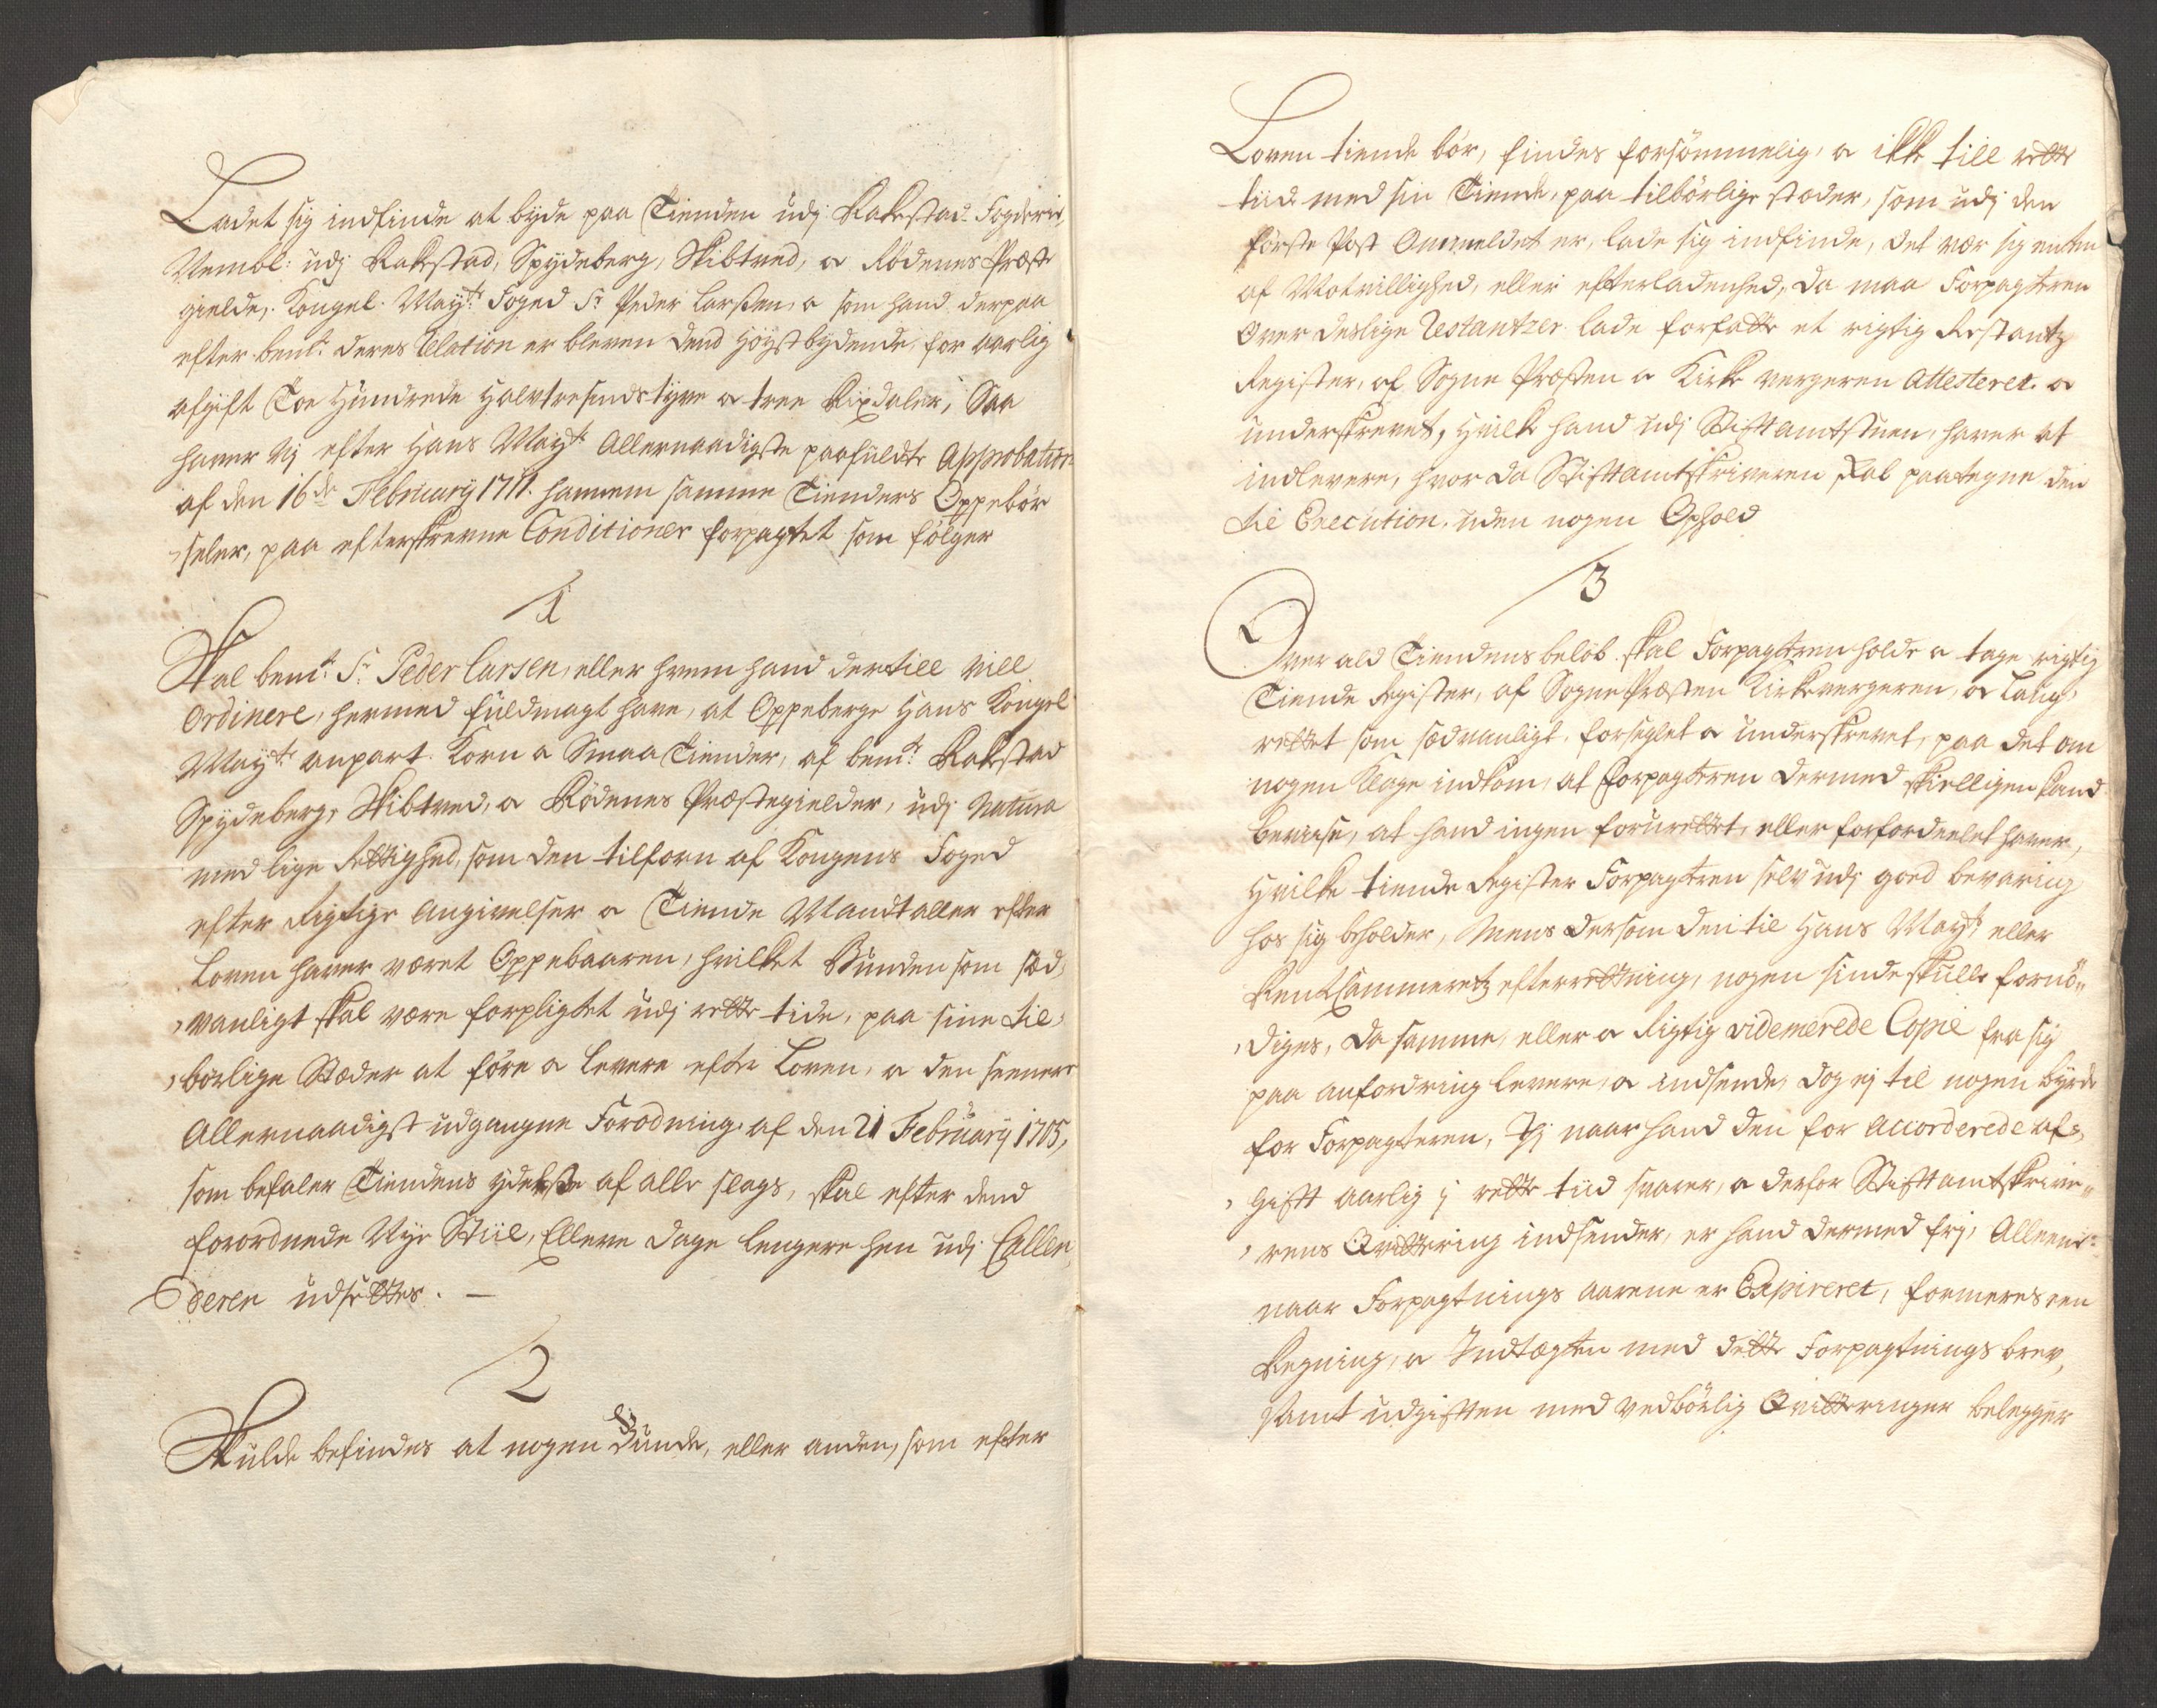 Ladet sig indfinde at byde paa Tienden udj Rakestad Fogderie,
Nembl: udj Rakestad, Spydeberg, Skibtved, a Rödenes Præste
gielde, Kongel. Mayts Foged Sr Peder Larssen, a som hand derpaa
efter bemte deres Relation er bleven dend Höystbydende, for aarlig
afgift Toe Hundrede Halvtresindstyve a tree Rixdaler, Saa
haver Vj efter Hans Mayts Allernaadigste paafuldte Approbation
af den 16de February 1711. hannem samme Tienders Oppebör
seler, paa efterskrevne Conditioner forpagtet som fölger
1
Skal bemte Sr Peder Larsen, eller hvem hand dertill vill
Ordinere, hermed fuldmagt have, at Oppeberge Hans Kongel
Mayts anpart Korn a Smaa Tiender, af bemte Rakestad
Spydeberg, Skibtved, a Rödenes Præstegielder, udj Natura
med lige Rettighed, som den tilforn af Kongens Foged
efter Rigtige Angivelser a Tiende Mandtaller efter
Loven haver været Oppebaaren, hvilket Bunden som sæd,
vanligt skal være forpligtet udj rette tide, paa sine til,
börlige Stæder at före a levere efter Loven, a den seenere
Allernaadigst udgangne Forodning af den 21 February 1705,
som befaler Tiendens ydelse af alle slags, skal efter dend
forordnede Nye Stiil, Elleve dage lengere hen udj Callen,
deren udsættes. —
2
Skulde befindes at nogen Bunde, eller anden, som efter
Loven tiende bör, findes forsömmelig, a ikke till rette
tiid med sin Tiende, paa tilbörlige stæder, som udj den
förste Post Ommeldet er, lade sig indfinde, det vær sig enten
af Motvillighed, eller efterladenhed, da maa Forpagteren
Over deslige Restantzer lade forfatte et rigtig Restantz
Register, af Sogne Præsten a Kirke vergeren Attesteret a
underskrevet, Hvilke hand udj Stiftamtstuen, haver at
indlevere, hvor da Stiftamtskriveren skal paategne den
til Execution, uden nogen Ophold
3
Over ald Tiendens belöb skal Forpagteren holde a tage rigtig
Tiende Register, af Sogne Præsten Kirkevergeren, a Laug,
rettet som sædvanligt, forseglet a underskrevet, paa det om
nogen Klage indkom, at Forpagteren dermed skielligen kand
bevise, at hand ingen forurettet, eller forfordeelet haver,
Hvilke tiende Register Forpagteren selv udj goed bevaring
hos sig beholder, Mens dersom den til Hans Mayts eller
RentCammeretz efterrettning, nogen sinde skulle fornö„
diges, da samme, eller a Rigtig videmerede Copie fra sig
paa anfordring levere, a indsende, dog ej til nogen byrde
for Forpagteren, Thj naar hand den for Accorderede af„
gift aarlig j rette tiid svarer, a derfor Stiftamtskrive„
rens Qvittering indsender, er hand dermed frj, Alleene
naar Forpagtnings aarene er Expireret, formeres een
Regning, a Indtægten med dette Forpagtnings brev,
samt udgiften med vedbörlig Qvitteringer belegger